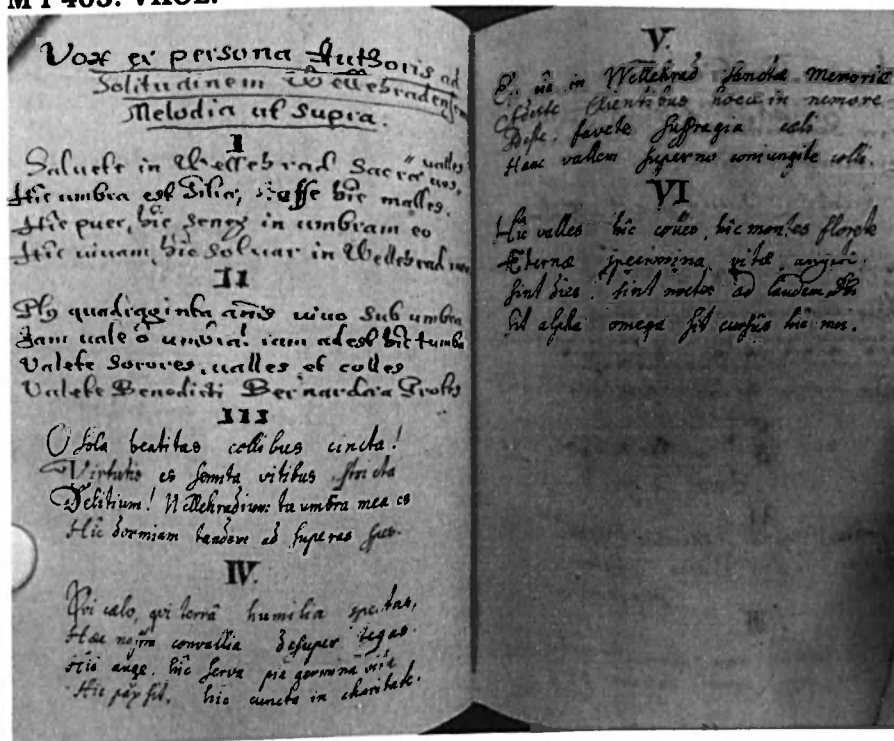 M I 403. VAOL.
Vox ex persona Authoris ad
Solitudinem Wellehradensem
Melodia ut supra.
I
Saluete in Wellehrad Sacræ valles
Hic umbra est Silia, Esse hic malles.
Hic puer, hic Senex in umbram eo
Hic uiuam, hic Soluar in Wellehrad meo
II
Plus quadraginta annis uiuo Sub umbra
Jam uale ô umbra! iam adest hic tumba
Valete Sorores, ualles et colles
Valete Benedicti Bernardæa Proles
III
O Sola beatitas collibus cincta!
Virtutis es Semita vitibus stricta
Delitium! Wellehradium: tu umbra mea es
Hic dormiam tandem ad Superas Spes.
IV.
Qvi cælo, qvi terrâ humilia spectas,
Hæc nostra convallia desuper tegas.
Hic auge, hic Serva pia germina vitæ
Hic pax sit, hic cuncta in charitate.
V.
in Wellehrad Sanctæ Memoriæ
Adeste Clientibus hocce in nemore
Deste, favete Suffragia cæli
Hanc vallem Superno coniungite colli.
VI
Hic valles hic colles, hic montes florete
Æternæ specimina vitæ
Sint dies, sint noctes ad laudem Dei
Sit alpha omega Sit cursus hic mei.